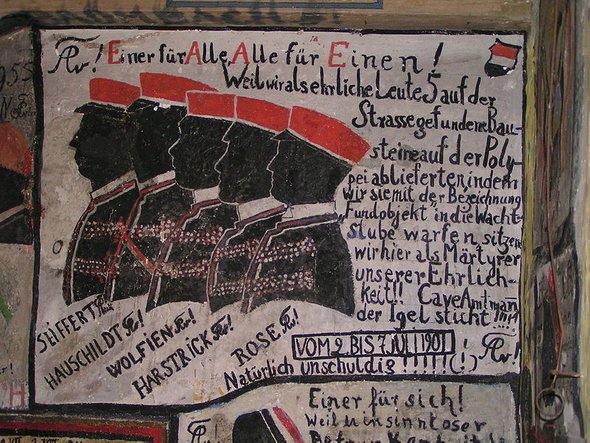 Einer für Alle, Alle für Einen!
Weil wir als ehrliche Leute 5 auf der
Strasse gefundene Bau-
steine auf der Poly-
pei ablieferten, indem
wir sie mit der Bezeichnung
„Fundobjekt" in die Wacht-
stube warfen, sitzen
wir hier als Märtyrer
unserer Ehrlich-
keit!! Cave Amtman
der Igel sticht
SEIFFERT
HAUSCHILDT!
WOLFIEN!
HARSTRICK!
ROSE!
VOM 2. BIS 7. JULI 1901
Natürlich unschuldig!!!!!(!)
Einer für sich!
Weil u in sinntoser